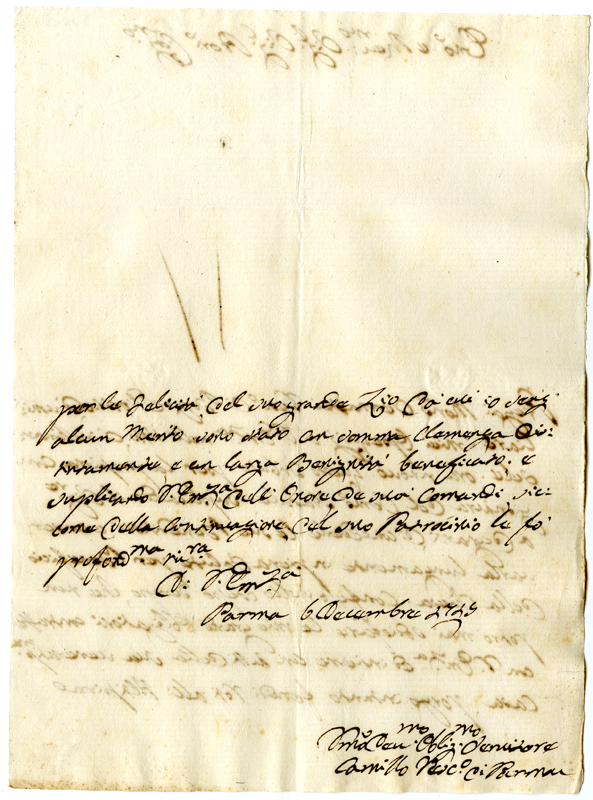 per la Felicità del suo grande Zio da cui io senz
alcun Merito sono stato con somma Clemenza Dis-
tintamente e con larga Benignità beneficato, e
suplicando V. Em.za dell' Onore de suoi Comandi sic-
come della Continuazione del suo Patrocinio le fo
profond.ma riu.ra
Di V. Em.za
Parma 6 Decembre 1725
Dev.mo Oblig.mo Servitore
Camillo Vesc.o di Parma